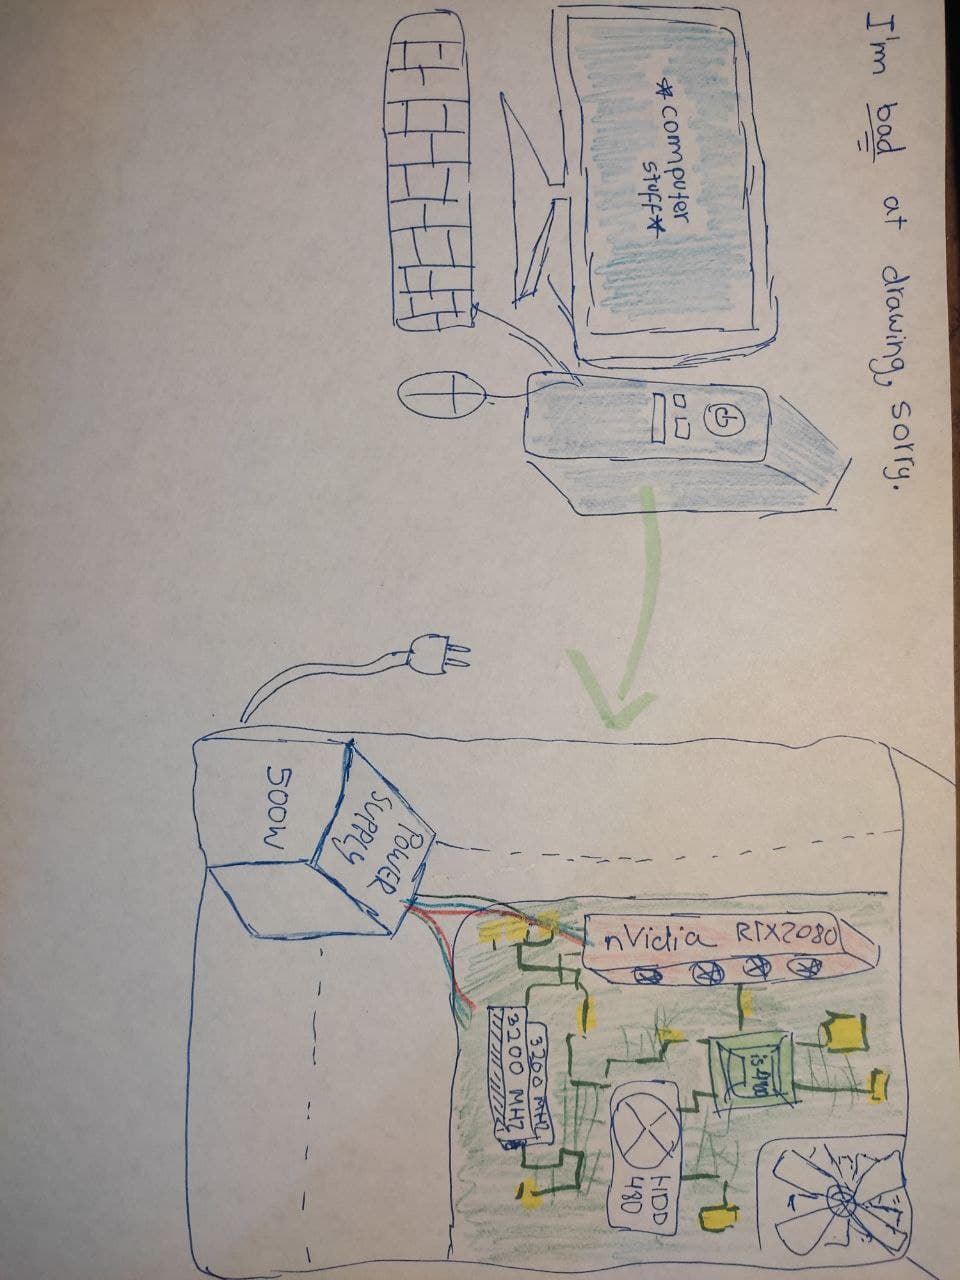 I'm bad at drawing, sorry.
*computer
stuff*
nVidia RTX2080
HDD
480
3200 MHz
3200 MHz
POWER
SUPPLY
500W